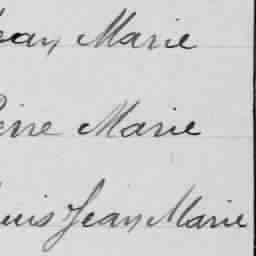 Jean Marie
Pierre Marie
Louis Jean Marie